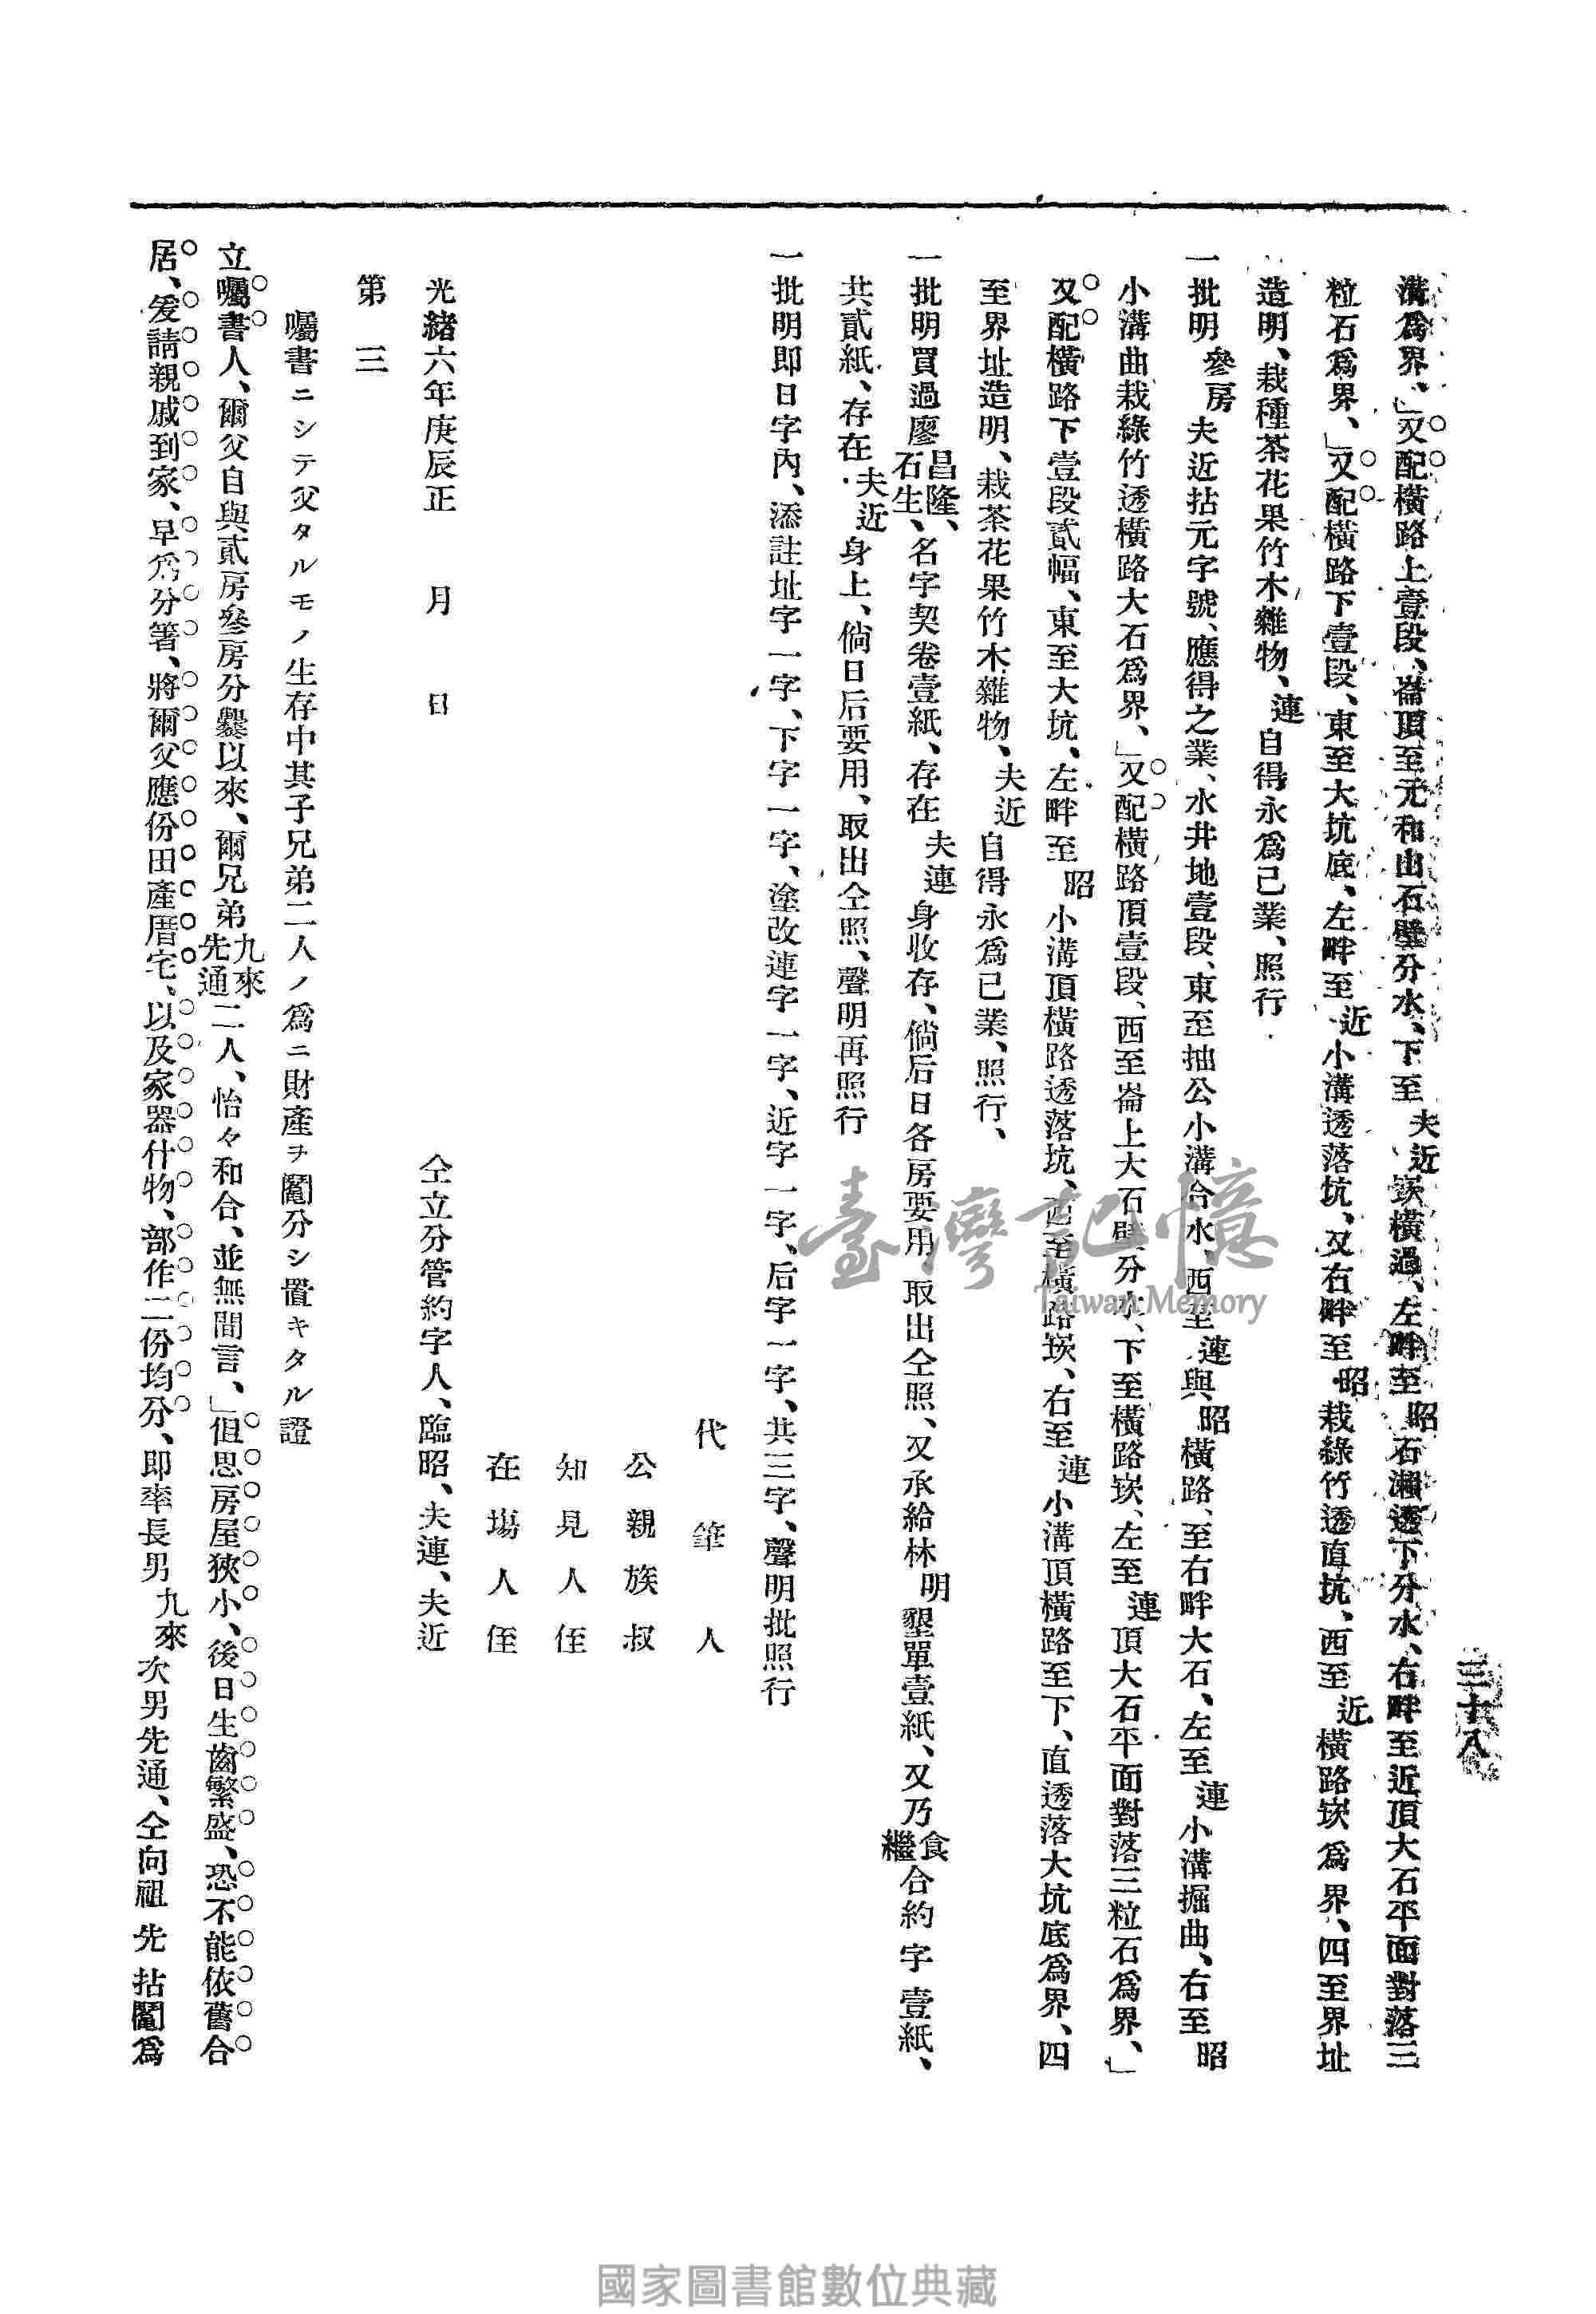 三十八
溝爲界、」又配橫路上壹段、崙頂至元和山石壁分水、下至夫近崁橫過、左畔至昭石瀨透下分水、右畔至近頂大石平面對落三
粒石爲界、」又配橫路下壹段、東至大坑底、左畔至近小溝透落坑、又右畔至昭栽綠竹透直坑、西至近橫路崁爲界、四至界址
造明、栽種茶花果竹木雜物、連自得永爲己業、照行
一批明參房夫近拈元字號、應得之業、水井地壹段、東至抽公小溝合水、西至連與昭橫路、至右畔大石、左至連小溝掘曲、右至昭
小溝曲栽綠竹透橫路大石爲界、」又配橫路頂壹段、西至崙上大石壁分水、下至橫路崁、左至連頂大石平面對落三粒石爲界、」
又配橫路下壹段貳幅、東至大坑、左畔至昭小溝頂橫路透落坑、西至橫路崁、右至連小溝頂橫路至下、直透落大坑底爲界、四
至界址造明、栽茶花果竹木雜物、夫近自得永爲己業、照行、
一批明買過廖昌隆、石生、名字契卷壹紙、存在夫連身收存、倘后日各房要用取出仝照、又承給林明墾單壹紙、又乃食繼合約字壹紙、
共貳紙、存在夫近身上、倘日后要用、取出仝照、聲明再照行
一批明即日字內、添註址字一字、下字一字、塗改連字一字、近字一字、后字一字、共三字、聲明批照行
代筆人
公親族叔
知見人侄
在塲人侄
光緒六年庚辰正月日 仝立分管約字人、臨昭、夫連、夫近
第三
囑書ニシテ父タルモノ生存中其子兄弟二人ノ爲ニ財產ヲ鬮分シ置キタル證
立囑書人、爾父自與貳房參房分爨以來、爾兄弟九來先通二人、怡々和合、並無間言、」但思房屋狹小、後日生齒繁盛、恐不能依舊合
居、爰請親戚到家、早爲分箸、將爾父應份田產厝宅、以及家器什物、部作二份均分、即率長男九來次男先通、仝向祖先拈鬮爲
臺灣記憶
Taiwan Memory
國家圖書館數位典藏